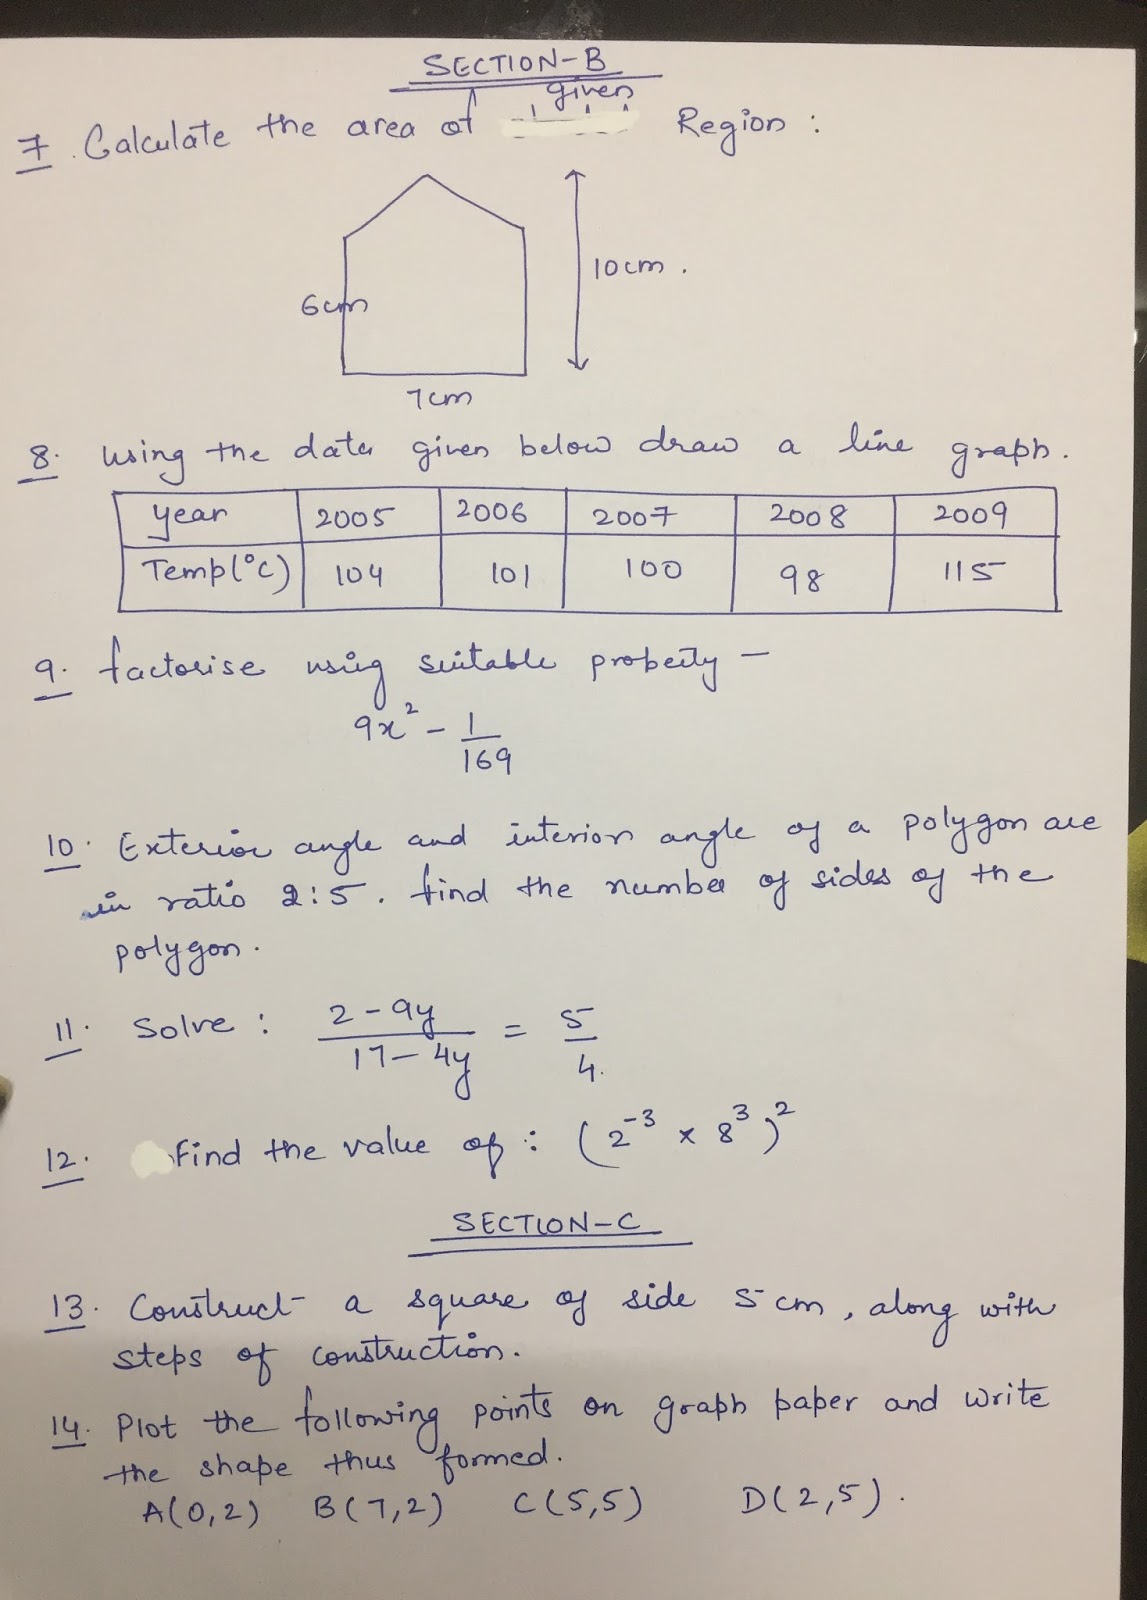 SECTION-B
given
7. Calculate the area of Region :
10cm.
6cm
7cm
8. using the data given below draw a line graph.
year 2005 2006 2007 2008 2009
Temp(°c) 104 101 100 98 115
9. factorise using suitable property -
9x² - 1/169
10. Exterior angle and interior angle of a polygon are
in ratio 2:5. find the number of sides of the
polygon.
11. Solve : (2-9y)/(17-4y) = 5/4.
12. find the value of : (2⁻³ x 8³)²
SECTION-C
13. Construct a square of side 5 cm, along with
steps of construction.
14. Plot the following points on graph paper and write
the shape thus formed.
A(0,2) B(7,2) C(5,5) D(2,5).